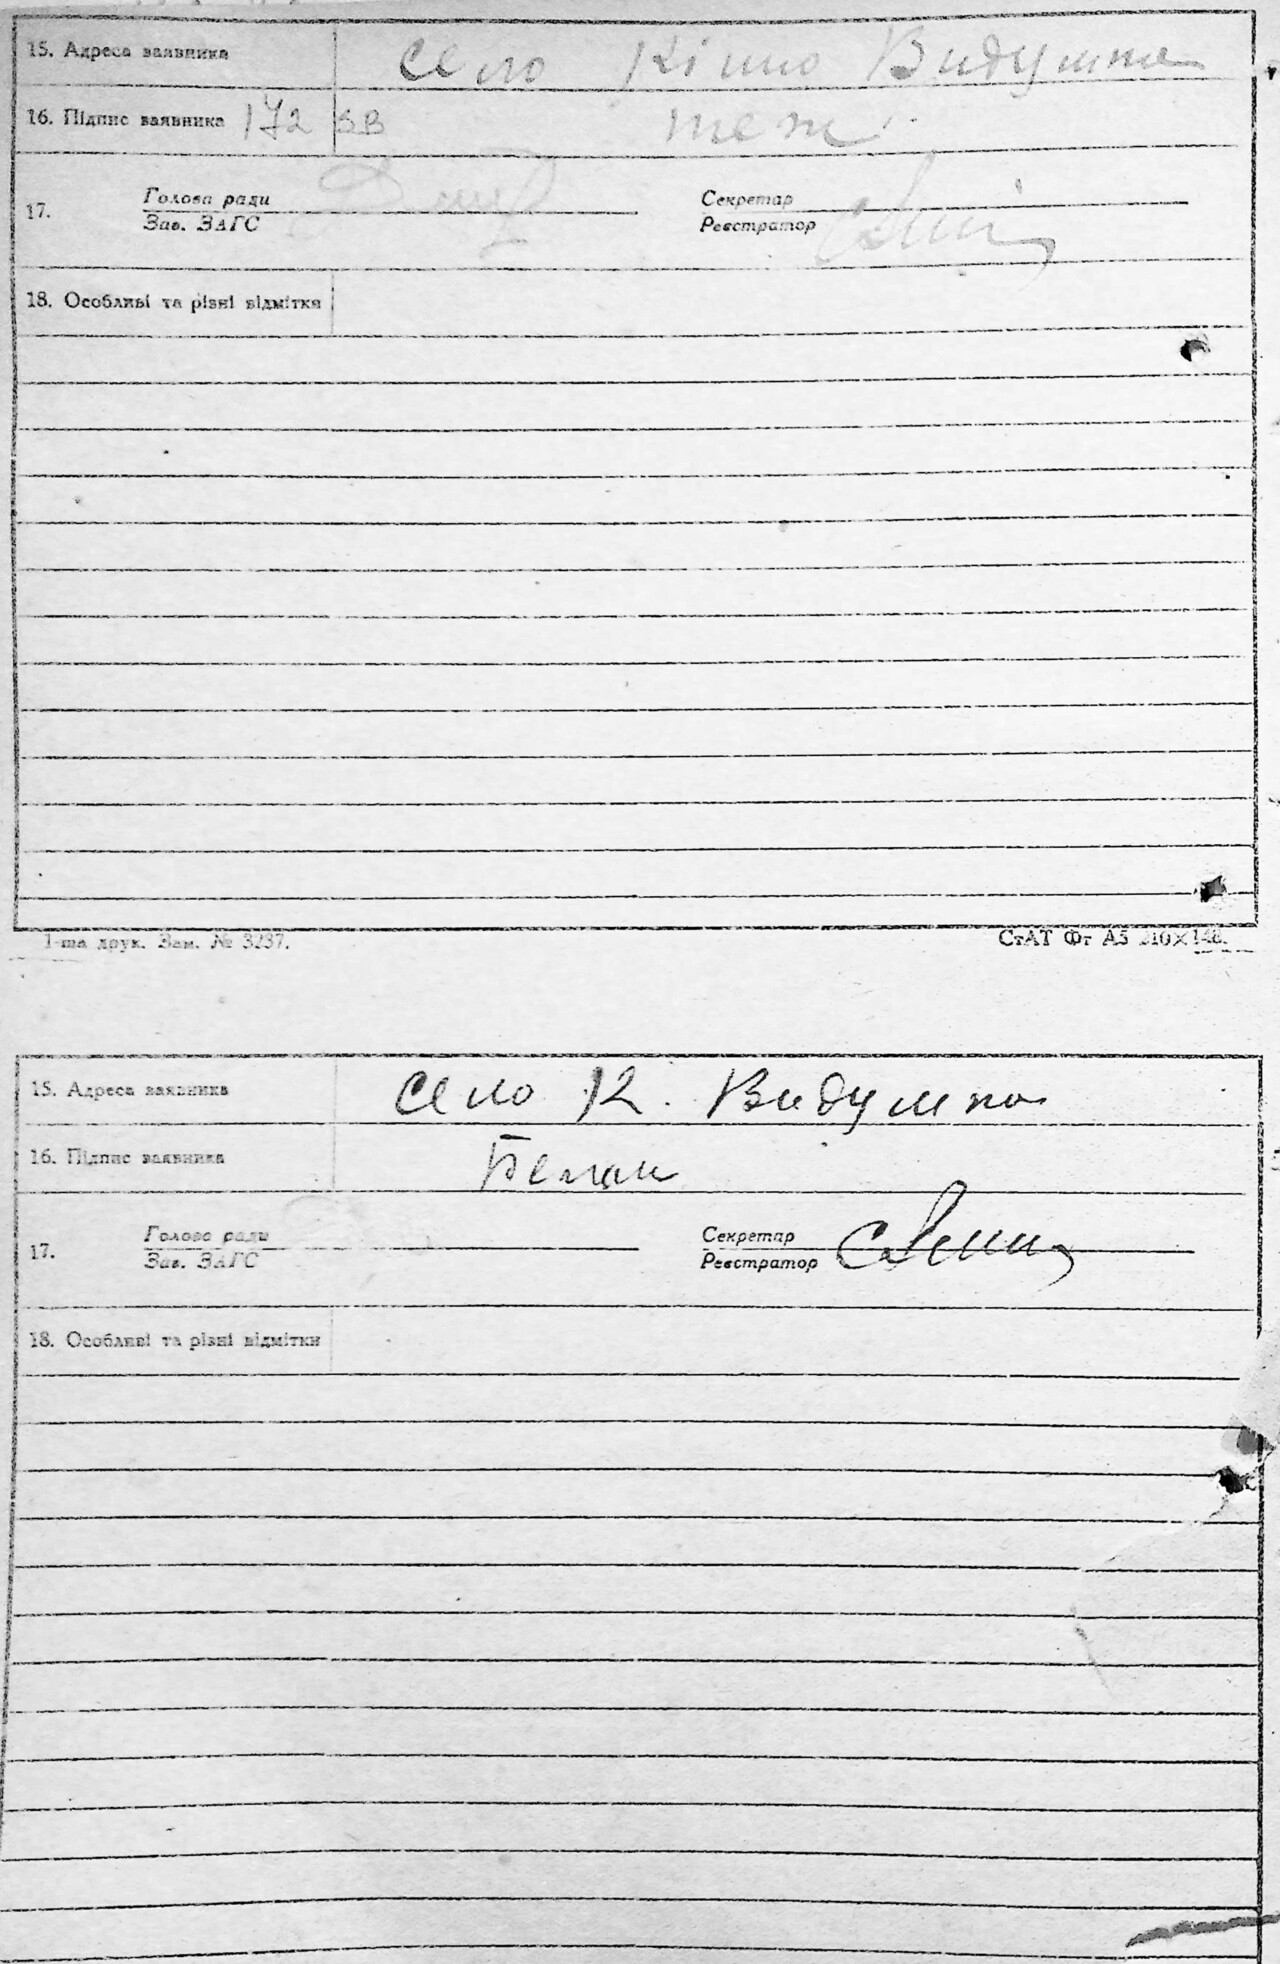 15. Адреса заявника село Кіно Видумка
16. Підпис заявника 172 теж
17. Голова ради Секретар
Зав. ЗАГС Реєстратор
18. Особливі та різні відмітки
1-ша друк. Зам. № 3237. СтАТ Фт А5 210×148.
15. Адреса заявника село К. Видумка
16. Підпис заявника
17. Голова ради Секретар
Зав. ЗАГС Реєстратор
18. Особливі та різні відмітки